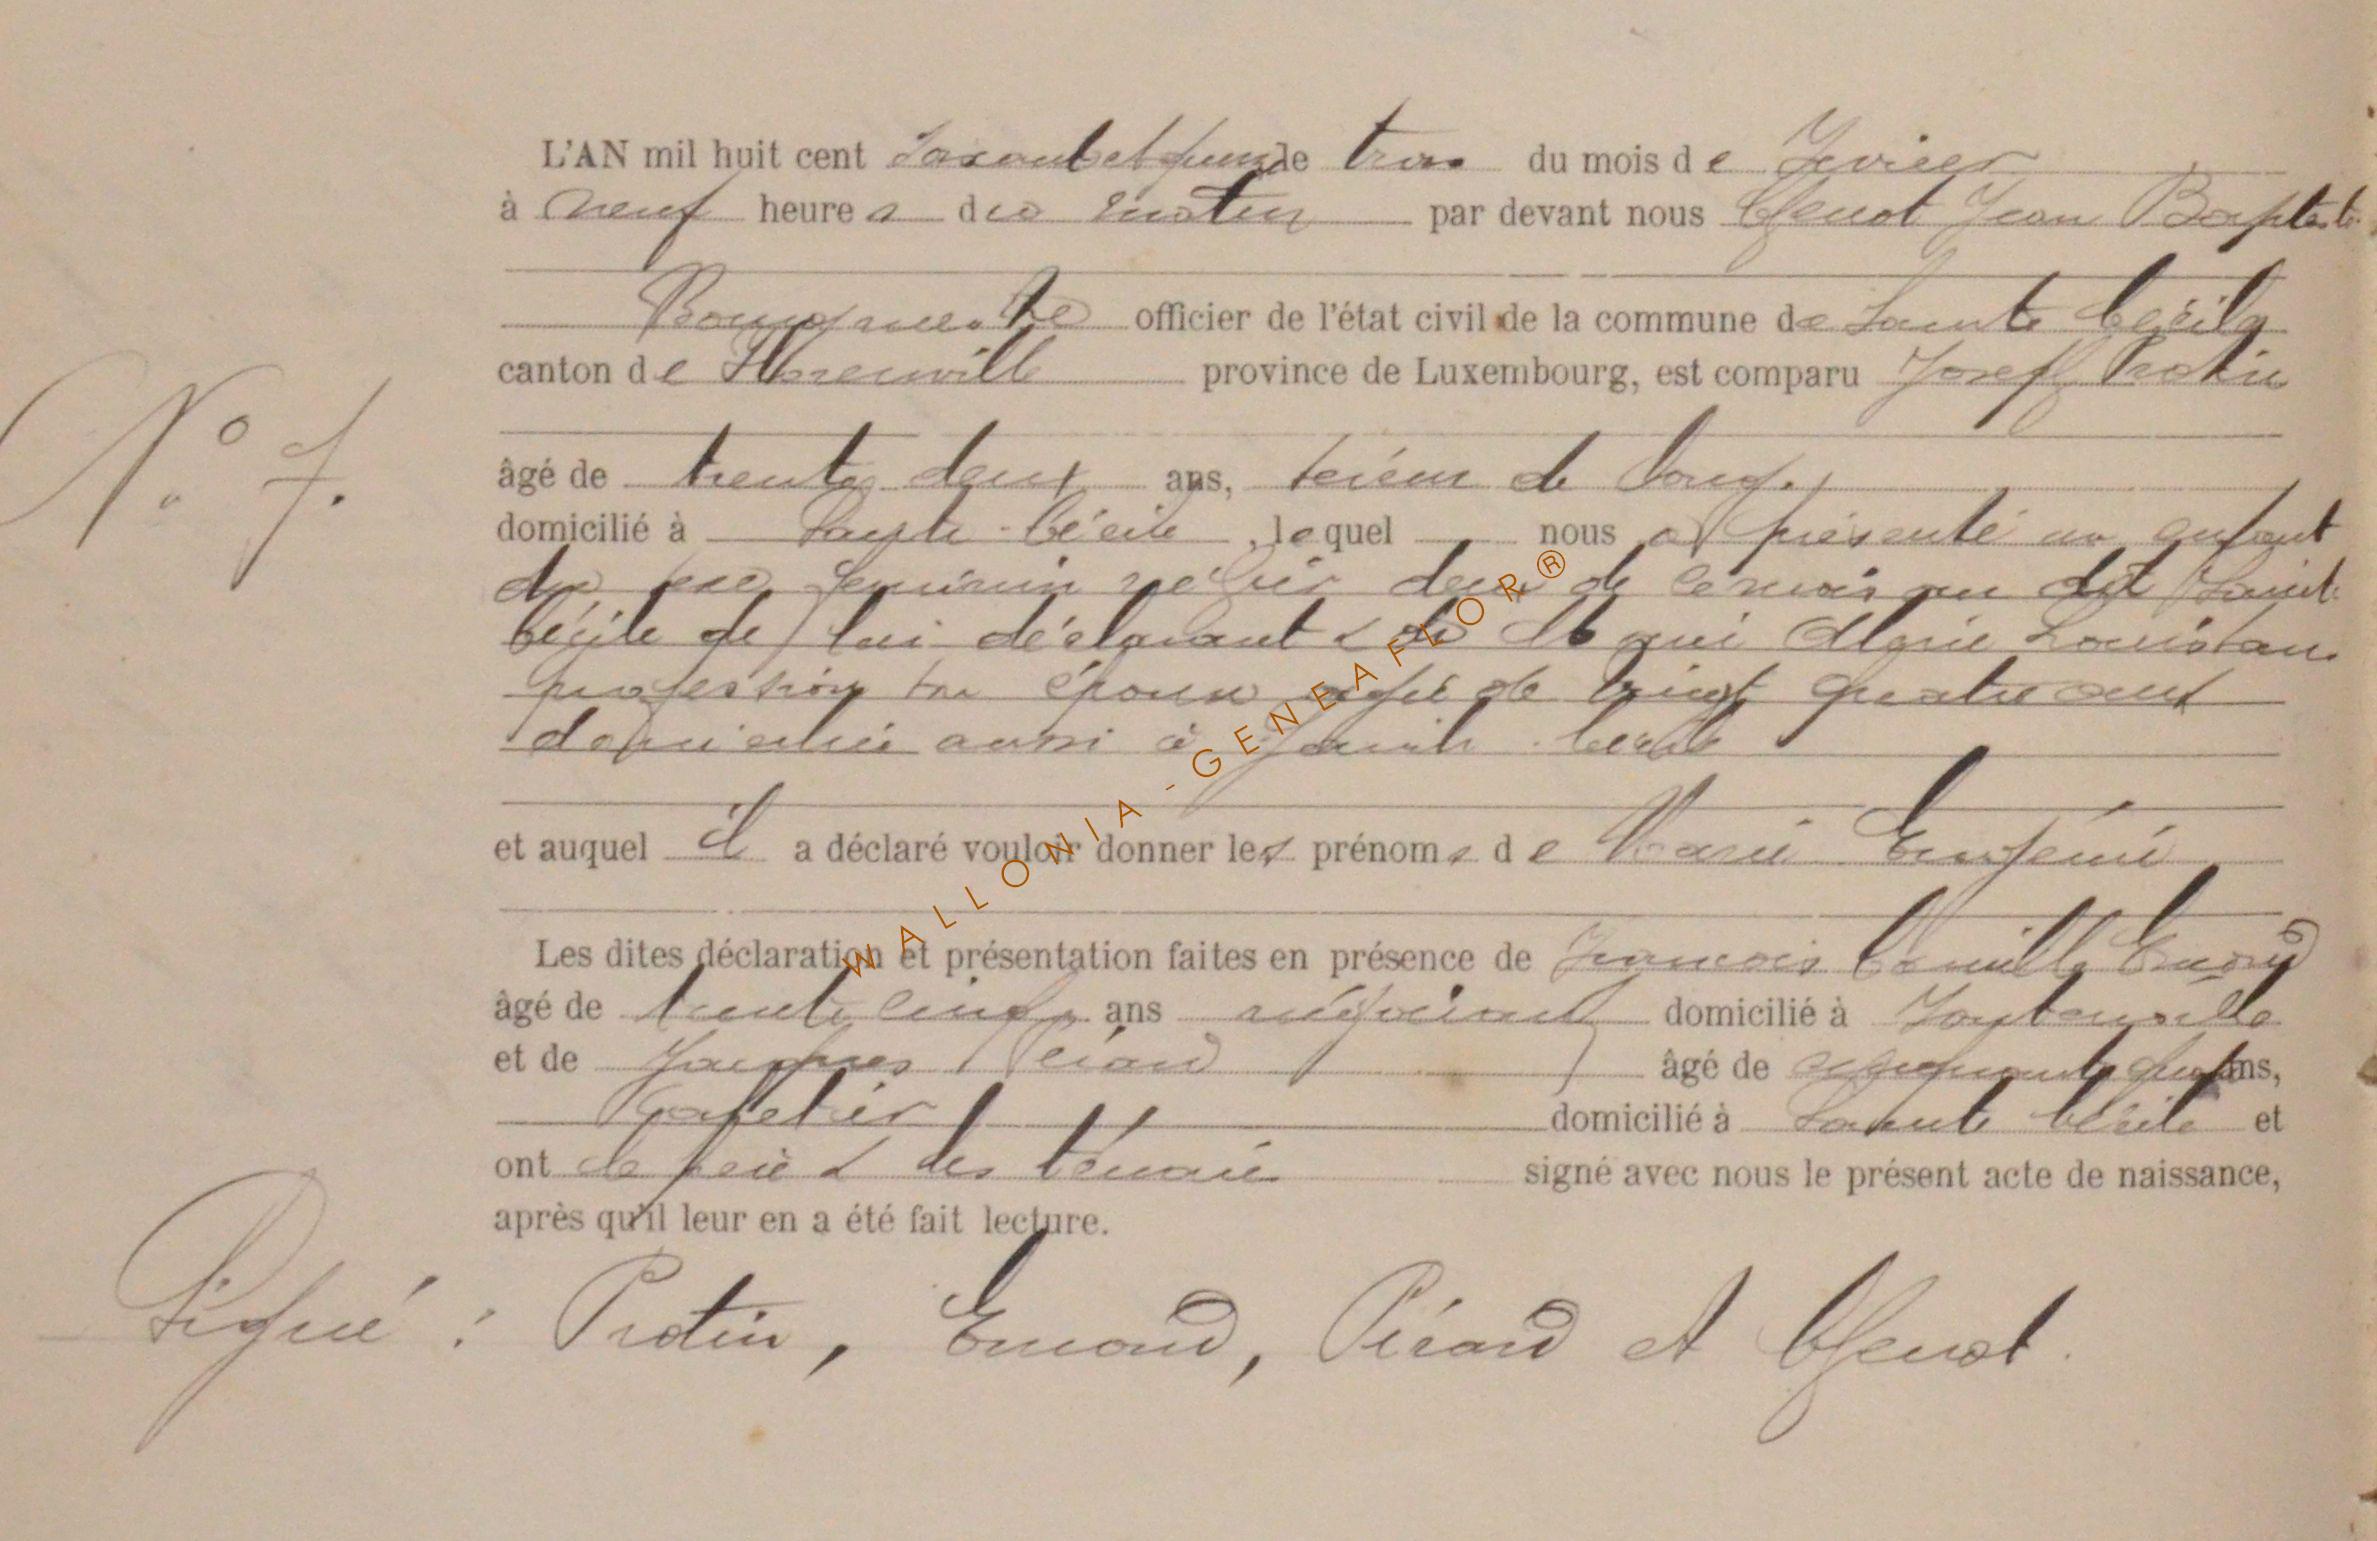 L'AN mil huit cent soixante et quinze le trois du mois de Fevrier
à neuf heures du matin par devant nous Genot Jean Baptiste
Bourgmestre officier de l'état civil de la commune de Sainte Cécile
canton de Florenville province de Luxembourg, est comparu Joseph Protin
N° 7.
âgé de trente deux ans, scieur de long
domicilié à Sainte-Cécile, lequel nous a présenté un enfant
du sexe feminin né hier deux de ce mois au dit Sainte
Cécile de lui déclarant & de Marie Louis sans
profession son épouse agée de vingt quatre ans
domiciliée aussi à Sainte-Cécile
et auquel il a déclaré vouloir donner les prénoms de Marie Eugénie
Les dites déclaration et présentation faites en présence de Francois Camille Emond
âgé de trente cinq ans négociant domicilié à Fontenoille
et de Jacques Piérard âgé de cinquante quatre ans,
domicilié à Sainte Cécile et
ont le père & les témoins signé avec nous le présent acte de naissance,
après qu'il leur en a été fait lecture.
Signé : Protin, Emond, Piérard et Genot.
WALLONIA - GENEAFLOR®